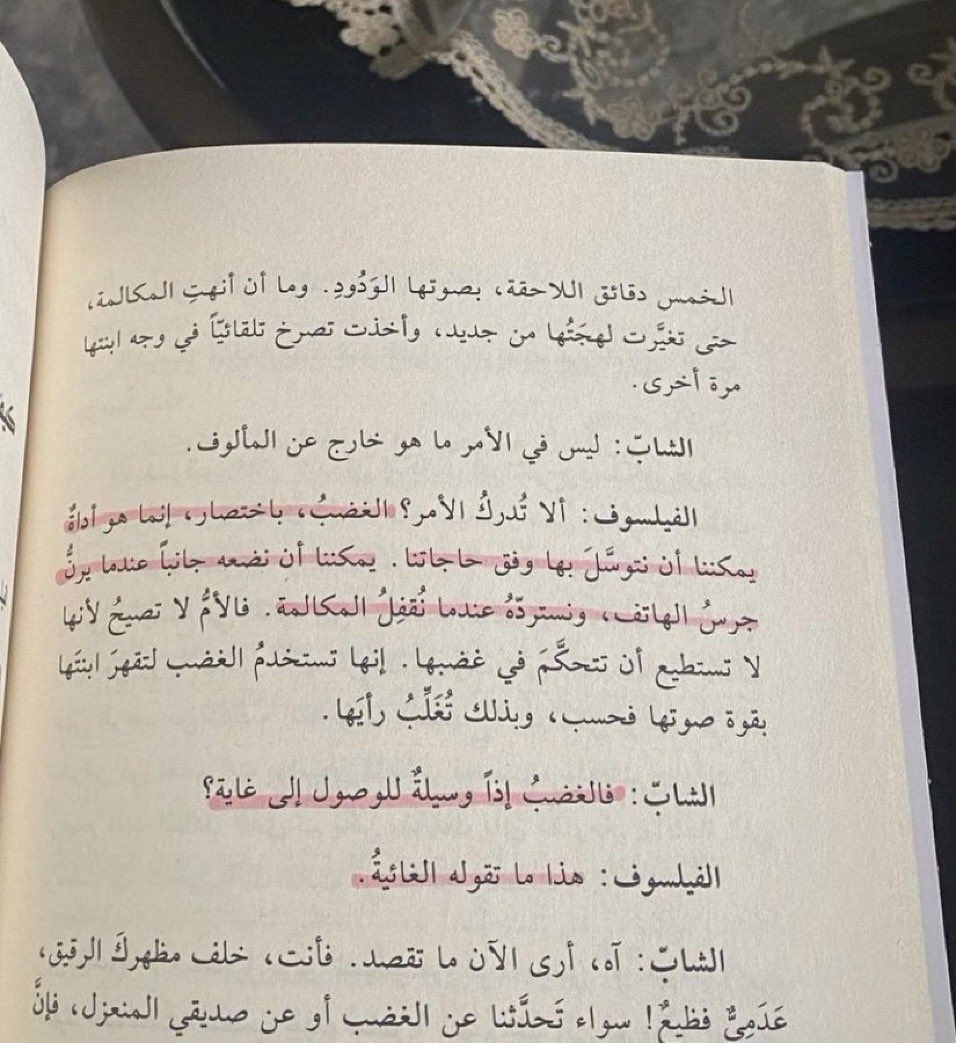 الخمس دقائق اللاحقة، بصوتها الوَدُودِ. وما أن أنهتِ المكالمة،
حتى تغيَّرت لهجَتُها من جديد، وأخذت تصرخ تلقائيّاً في وجه ابنتها
مرة أخرى.
الشابّ: ليس في الأمر ما هو خارج عن المألوف.
الفيلسوف: ألا تُدركُ الأمر؟ الغضبُ، باختصار، إنما هو أداةٌ
يمكننا أن نتوسَّلَ بها وفق حاجاتنا. يمكننا أن نضعه جانباً عندما يرنُّ
جرسُ الهاتف، ونستردّهُ عندما نُقفِلُ المكالمة. فالأمُّ لا تصيحُ لأنها
لا تستطيع أن تتحكَّمَ في غضبها. إنها تستخدمُ الغضب لتقهرَ ابنتَها
بقوة صوتها فحسب، وبذلك تُغَلِّبُ رأيَها.
الشابّ: فالغضبُ إذاً وسيلةٌ للوصول إلى غاية؟
الفيلسوف: هذا ما تقوله الغائيةُ.
الشابّ: آه، أرى الآن ما تقصد. فأنت، خلف مظهركَ الرقيق،
عَدَمِيٌّ فظيعٌ! سواء تَحدَّثنا عن الغضب أو عن صديقي المنعزل، فإنَّ